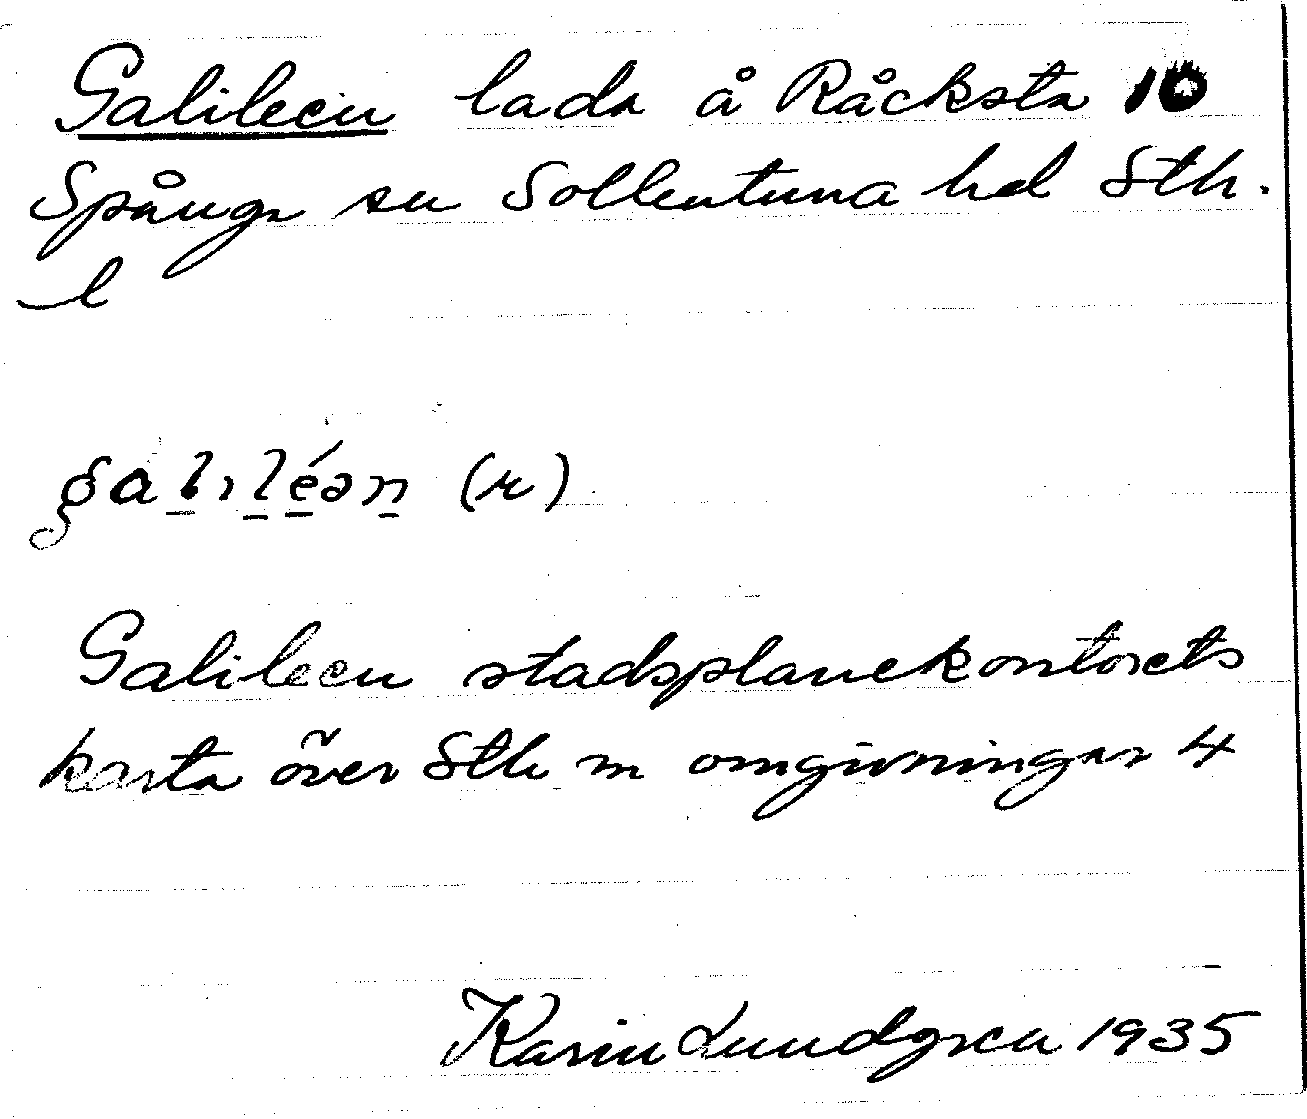 Galileen lada å Råcksta 10
Spånga sn Sollentuna hd Sth.
l
galıléən (r)
Galileen stadsplanekontorets
karta över Sth m omgivningar 4
Karin Lundgren 1935